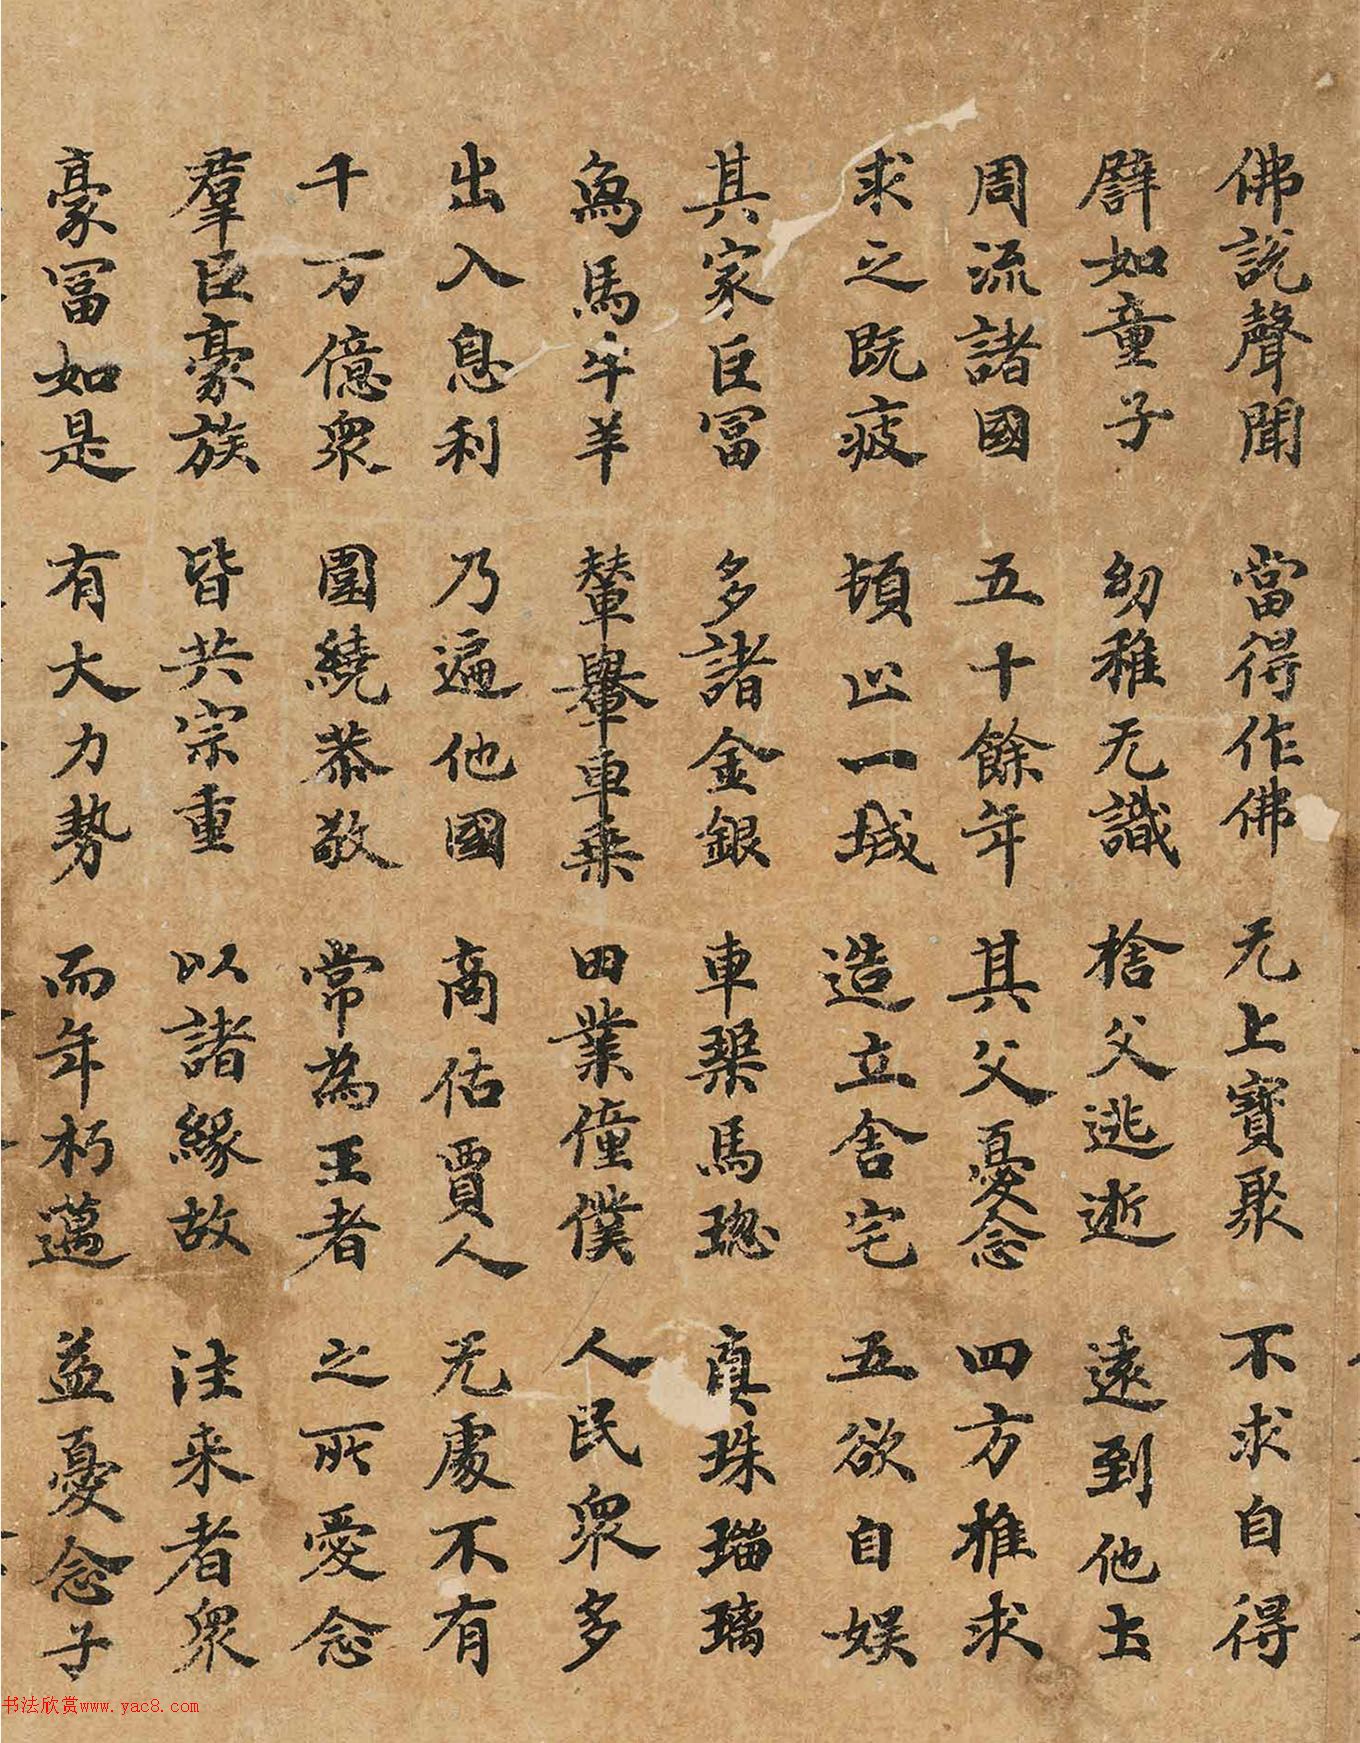 佛說聲聞 當得作佛 无上寶聚 不求自得
譬如童子 幼稚无識 捨父逃逝 遠到他土
周流諸國 五十餘年 其父憂念 四方推求
求之既疲 頓止一城 造立舍宅 五欲自娛
其家巨冨 多諸金銀 車璖馬瑙 真珠瑠璃
烏馬牛羊 輦轝車乗 田業僮僕 人民衆多
出入息利 乃遍他國 商估賈人 无處不有
千万億衆 圍繞恭敬 常為王者 之所愛念
羣臣豪族 皆共宗重 以諸緣故 往来者衆
豪冨如是 有大力勢 而年朽邁 益憂念子
书法欣赏www.yac8.com